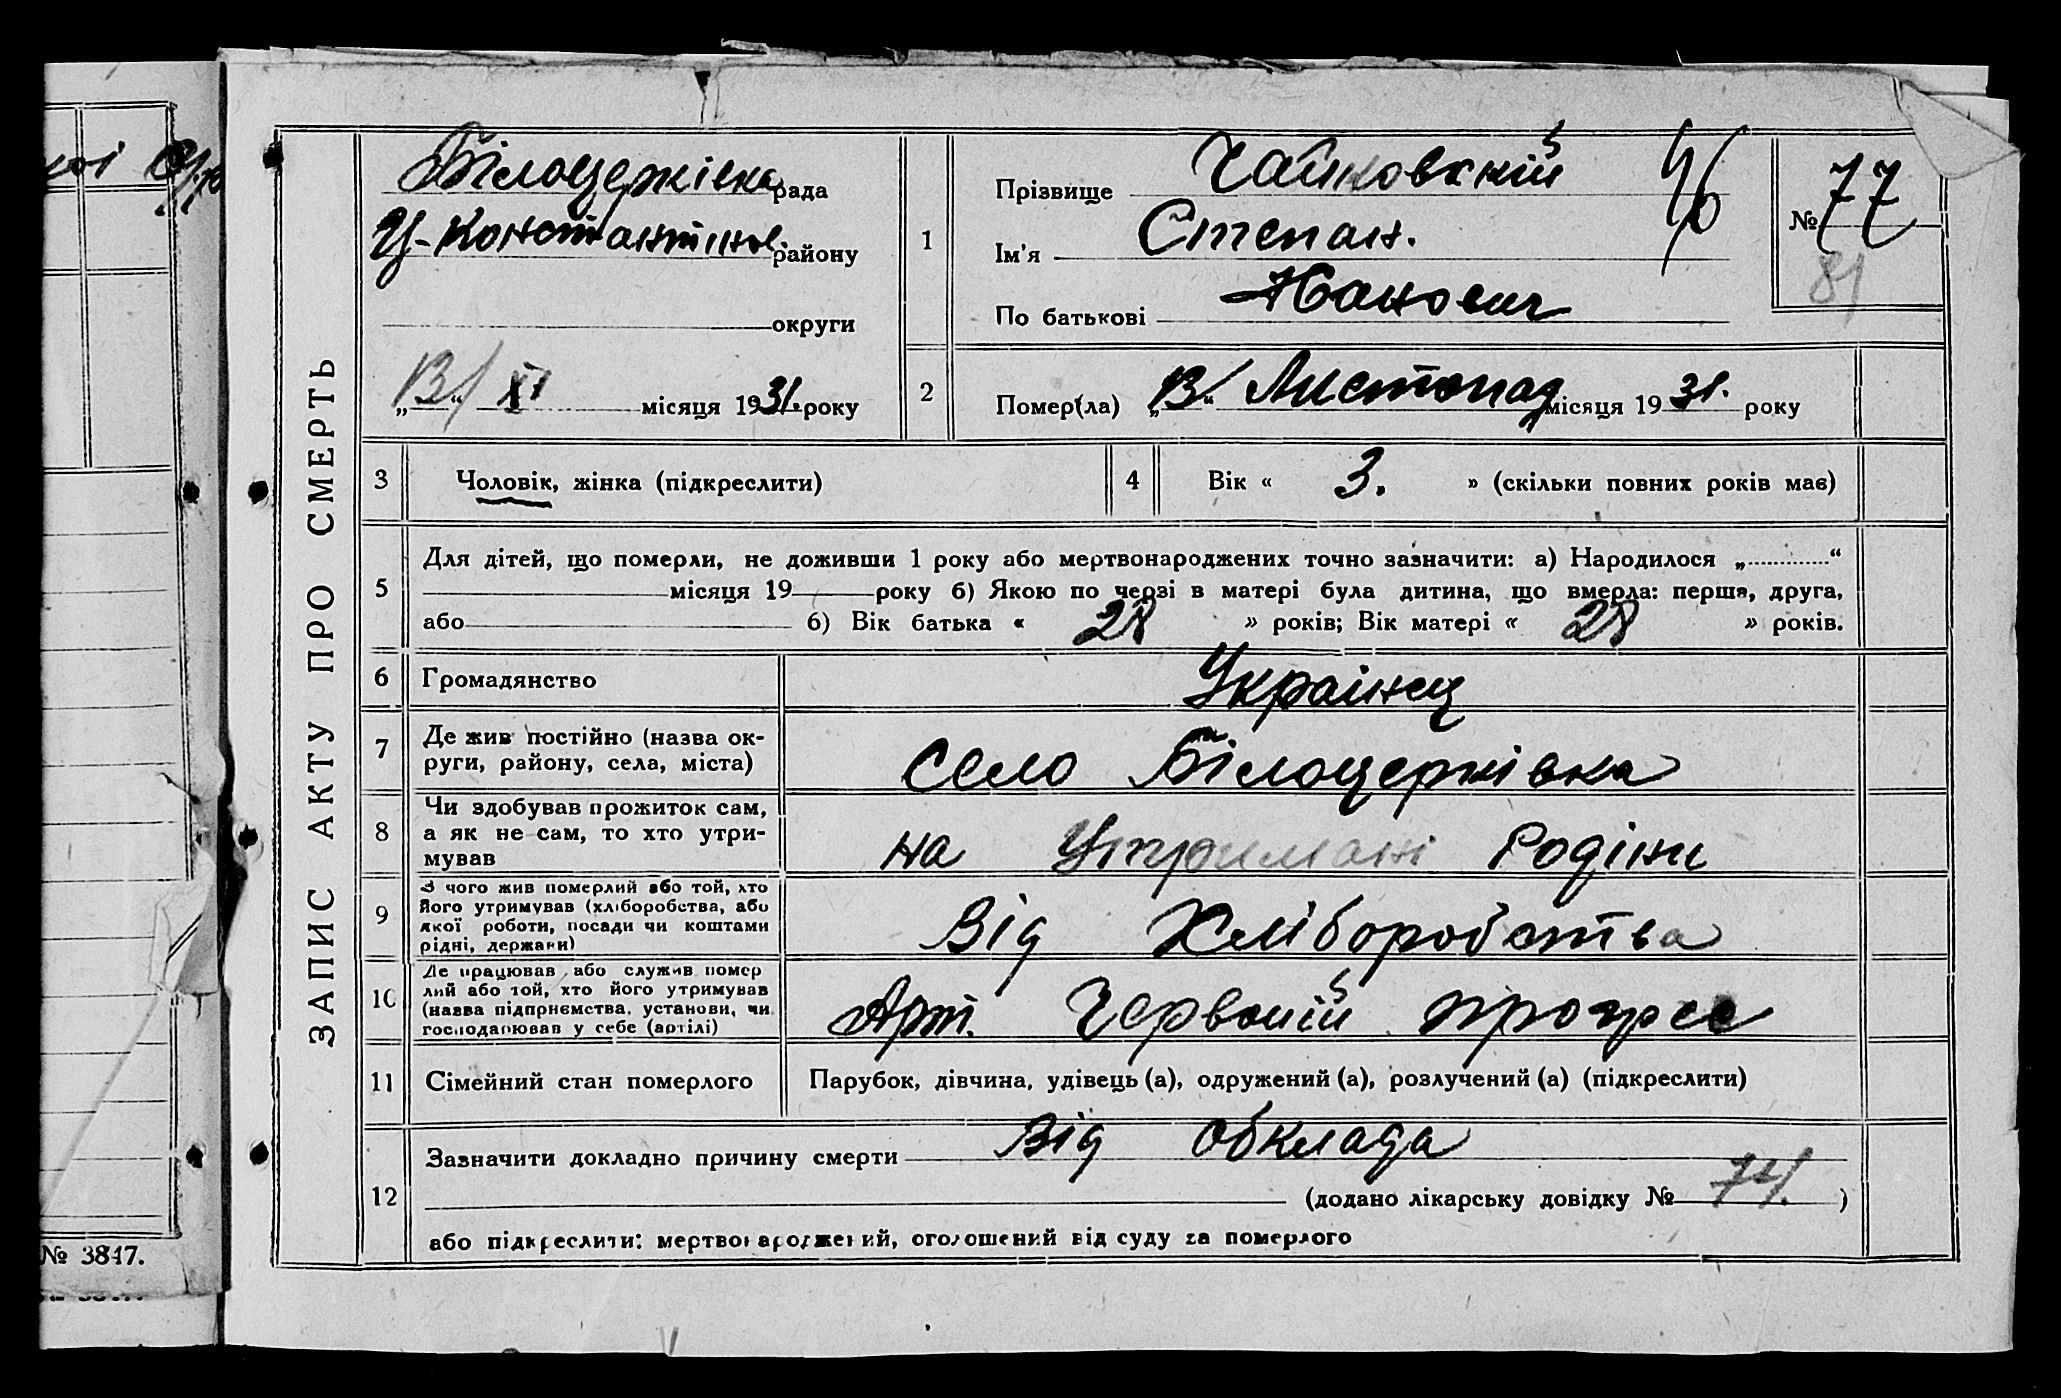 ЗАПИС АКТУ ПРО СМЕРТЬ
Білоцерківка рада
У-Константинов. району
округи
„13“ XI місяця 1931. року
1
Прізвище Чайковский
Ім'я Степан.
По батькові
46
№ 77
81
2
Помер(ла) „13“ Листопад місяця 1931. року
3
Чоловік, жінка (підкреслити)
4
Вік « 3. » (скільки повних років має)
5
Для дітей, що померли, не доживши 1 року або мертвонароджених точно зазначити: а) Народилося „ “
місяця 19 року б) Якою по черзі в матері була дитина, що вмерла: перша, друга,
або б) Вік батька « 28 » років; Вік матері « 28 » років.
6
Громадянство
Украінец
7
Де жив постійно (назва ок-
руги, району, села, міста)
Село Білоцерківка
8
Чи здобував прожиток сам,
а як не сам, то хто утри-
мував
на Утримані Родіни
9
З чого жив померлий або той, хто
його утримував (хліборобства, або
якої роботи, посади чи коштами
рідні, держави)
Від Хліборобства
10
Де працював або служив помер
лий або той, хто його утримував
(назва підприємства, установи, чи
господарював у себе (артілі)
Арт. Червоній прогрес
11
Сімейний стан померлого
Парубок, дівчина, удівець (а), одружений (а), розлучений (а) (підкреслити)
12
Зазначити докладно причину смерти Від обклада
(додано лікарську довідку № 74. )
або підкреслити: мертвонароджений, оголошений від суду за померлого
№ 3847.